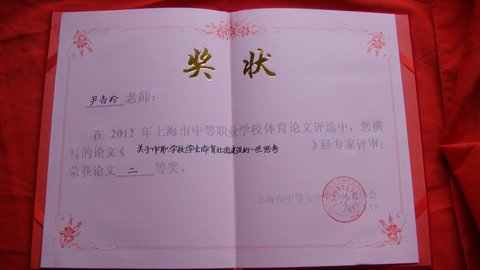 奖状
尹杏玲 老师：
在 2012 年上海市中等职业学校体育论文评选中，您撰
写的论文《关于中职学校学生体育社团建设的一些思考》经专家评审：
荣获论文 二 等奖。
上海市中等专业 会
15